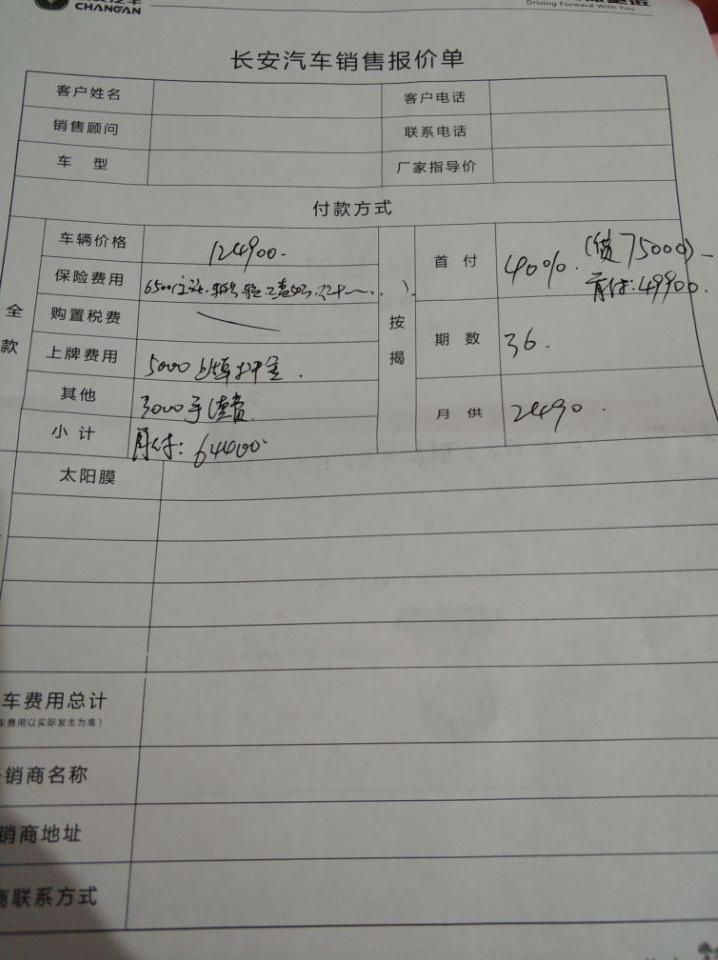 CHANGAN
Driving Forward With You
长安汽车销售报价单
客户姓名 客户电话
销售顾问 联系电话
车 型 厂家指导价
付款方式
全款
车辆价格 124900.
保险费用 6500
购置税费
上牌费用 5000 押金.
其他 3000手续费
小计 首付: 64400.
按揭
首 付 40%. (贷75000)
首付: 49900.
期 数 36.
月 供 2490.
太阳膜
车费用总计
车费用以实际发生为准)
销商名称
销商地址
商联系方式